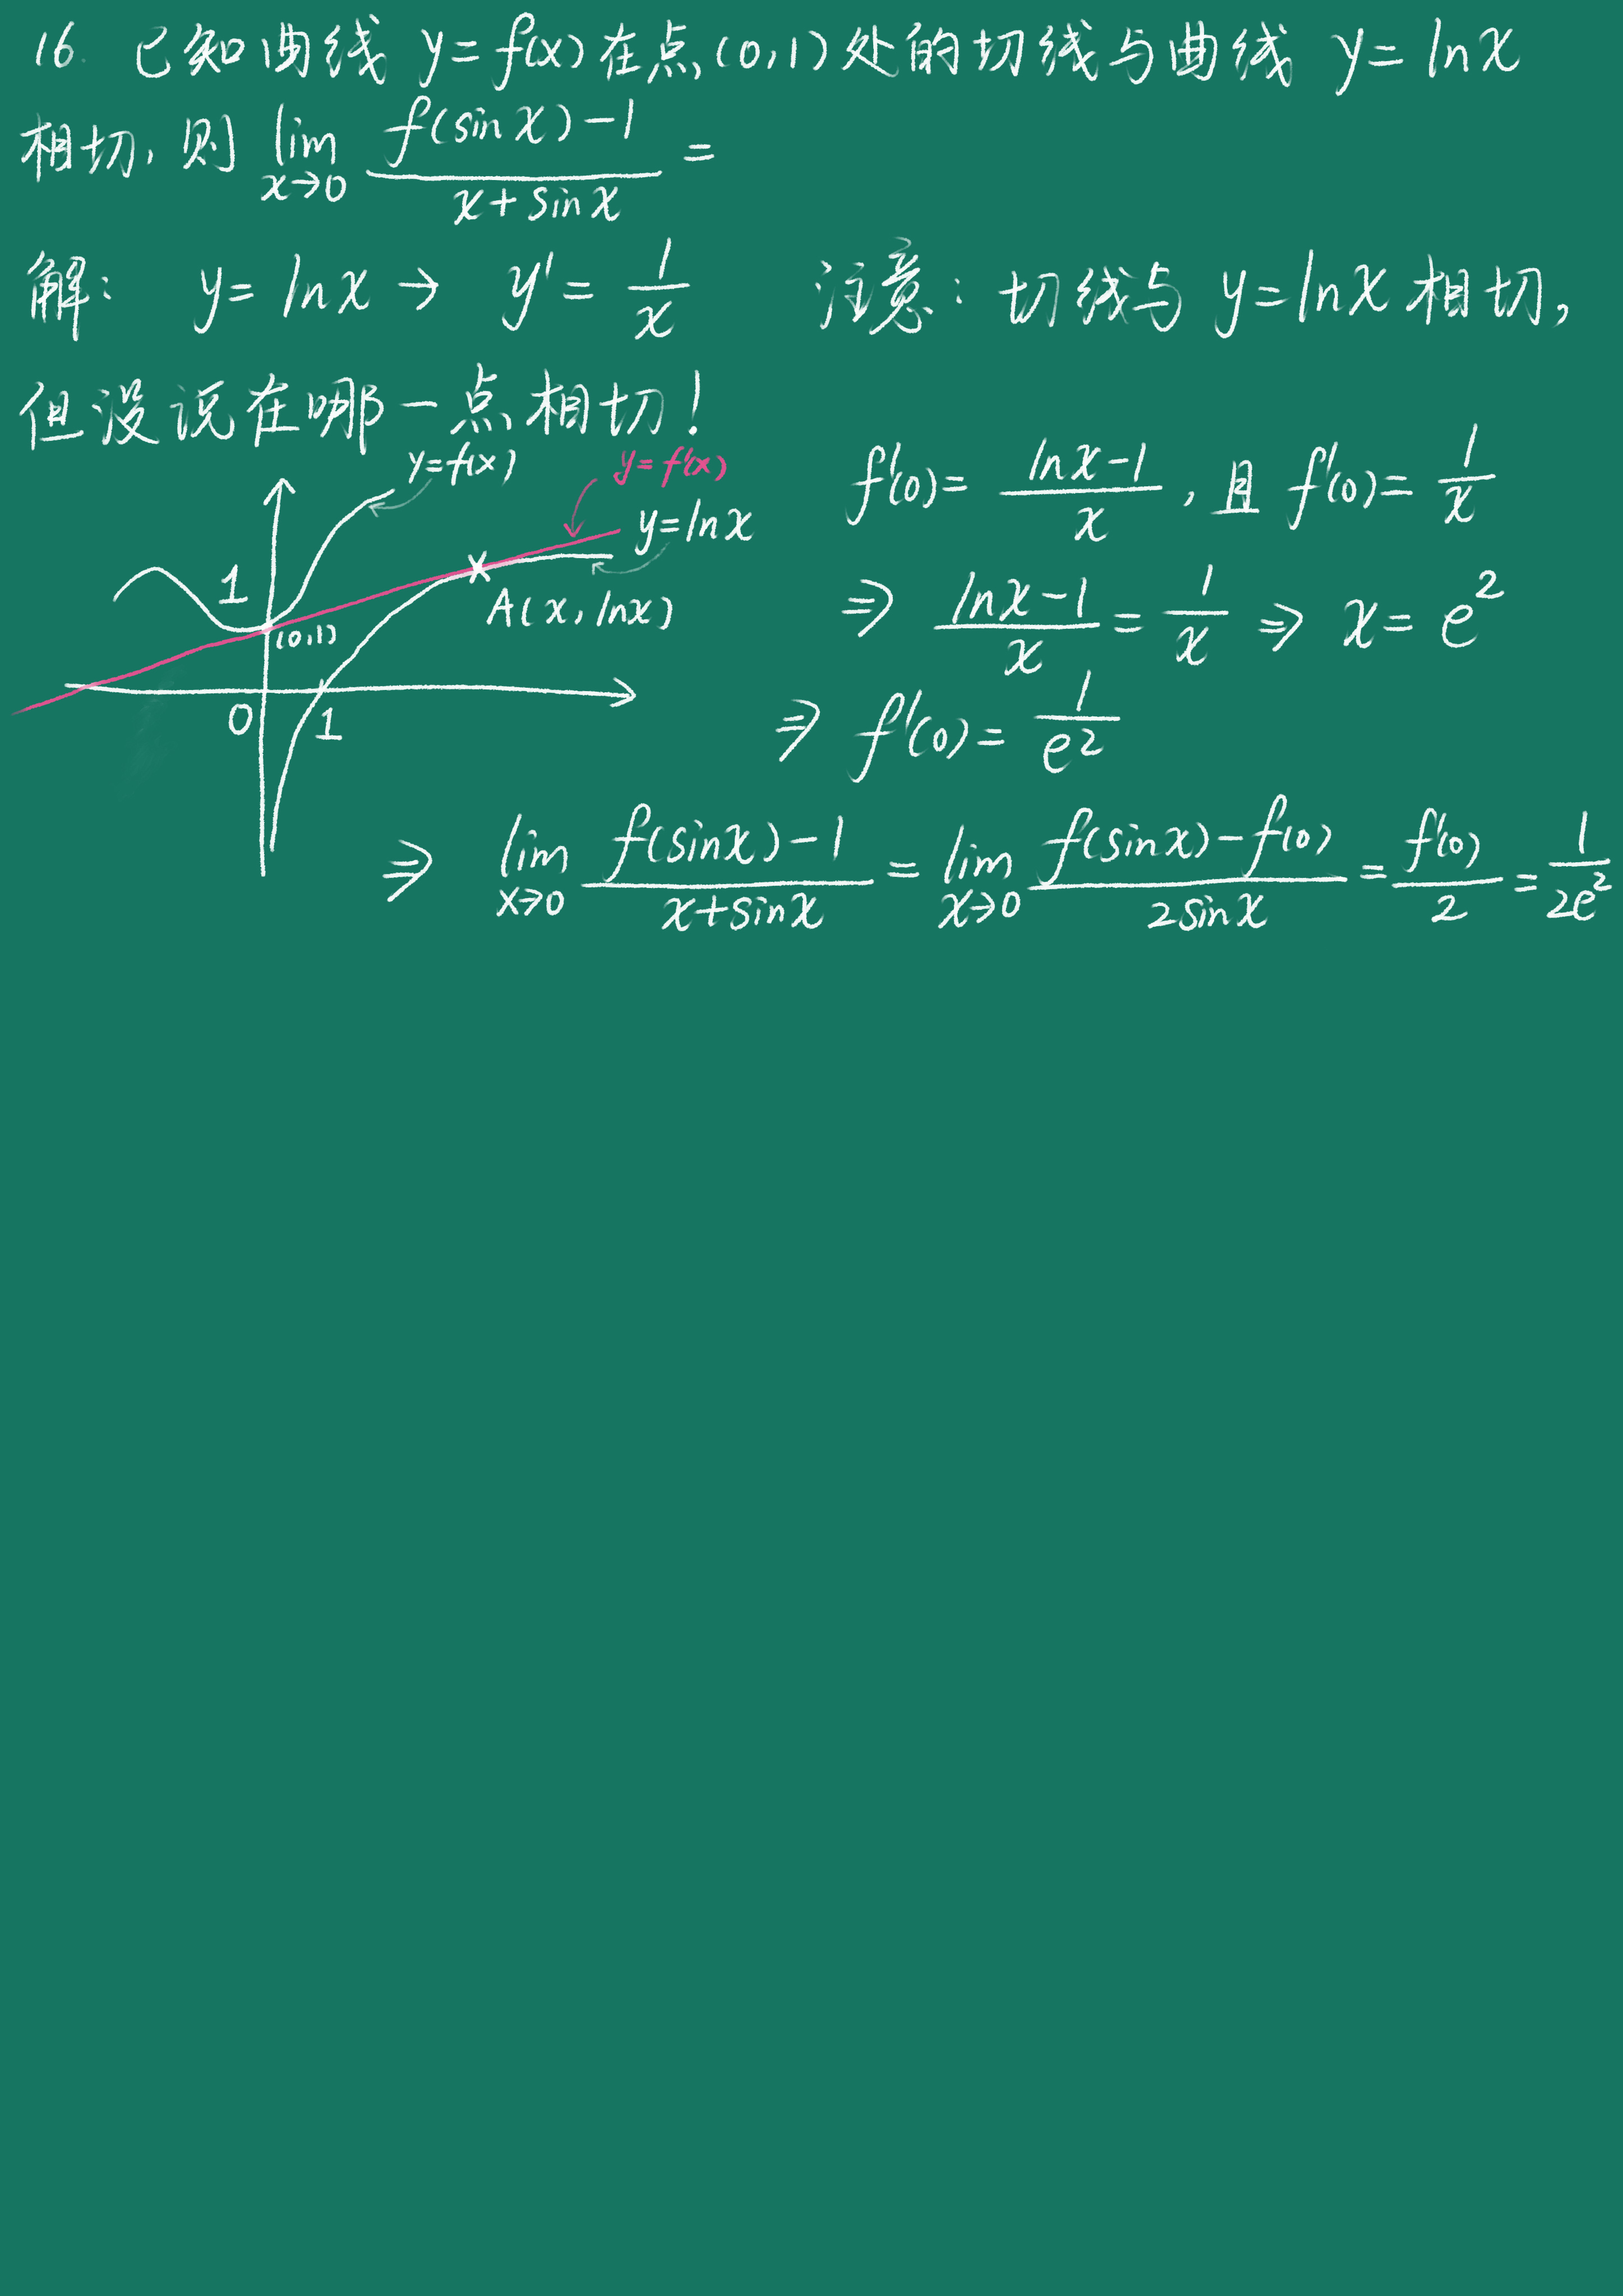 16. 已知曲线 y=f(x)在点(0,1)处的切线与曲线 y=lnx
相切, 则 lim_{x→0} \frac{f(sinx)-1}{x+sinx} =
解: y=lnx → y'=\frac{1}{x} 注意: 切线与 y=lnx 相切,
但没说在哪一点相切!
y=f(x)
y=f'(x)
y=lnx
1
(0,1)
A(x, lnx)
0
1
f'(0)=\frac{lnx-1}{x}, 且 f'(0)=\frac{1}{x}
⇒ \frac{lnx-1}{x}=\frac{1}{x} ⇒ x=e^2
⇒ f'(0)=\frac{1}{e^2}
⇒ lim_{x→0} \frac{f(sinx)-1}{x+sinx} = lim_{x→0} \frac{f(sinx)-f(0)}{2sinx} = \frac{f'(0)}{2} = \frac{1}{2e^2}